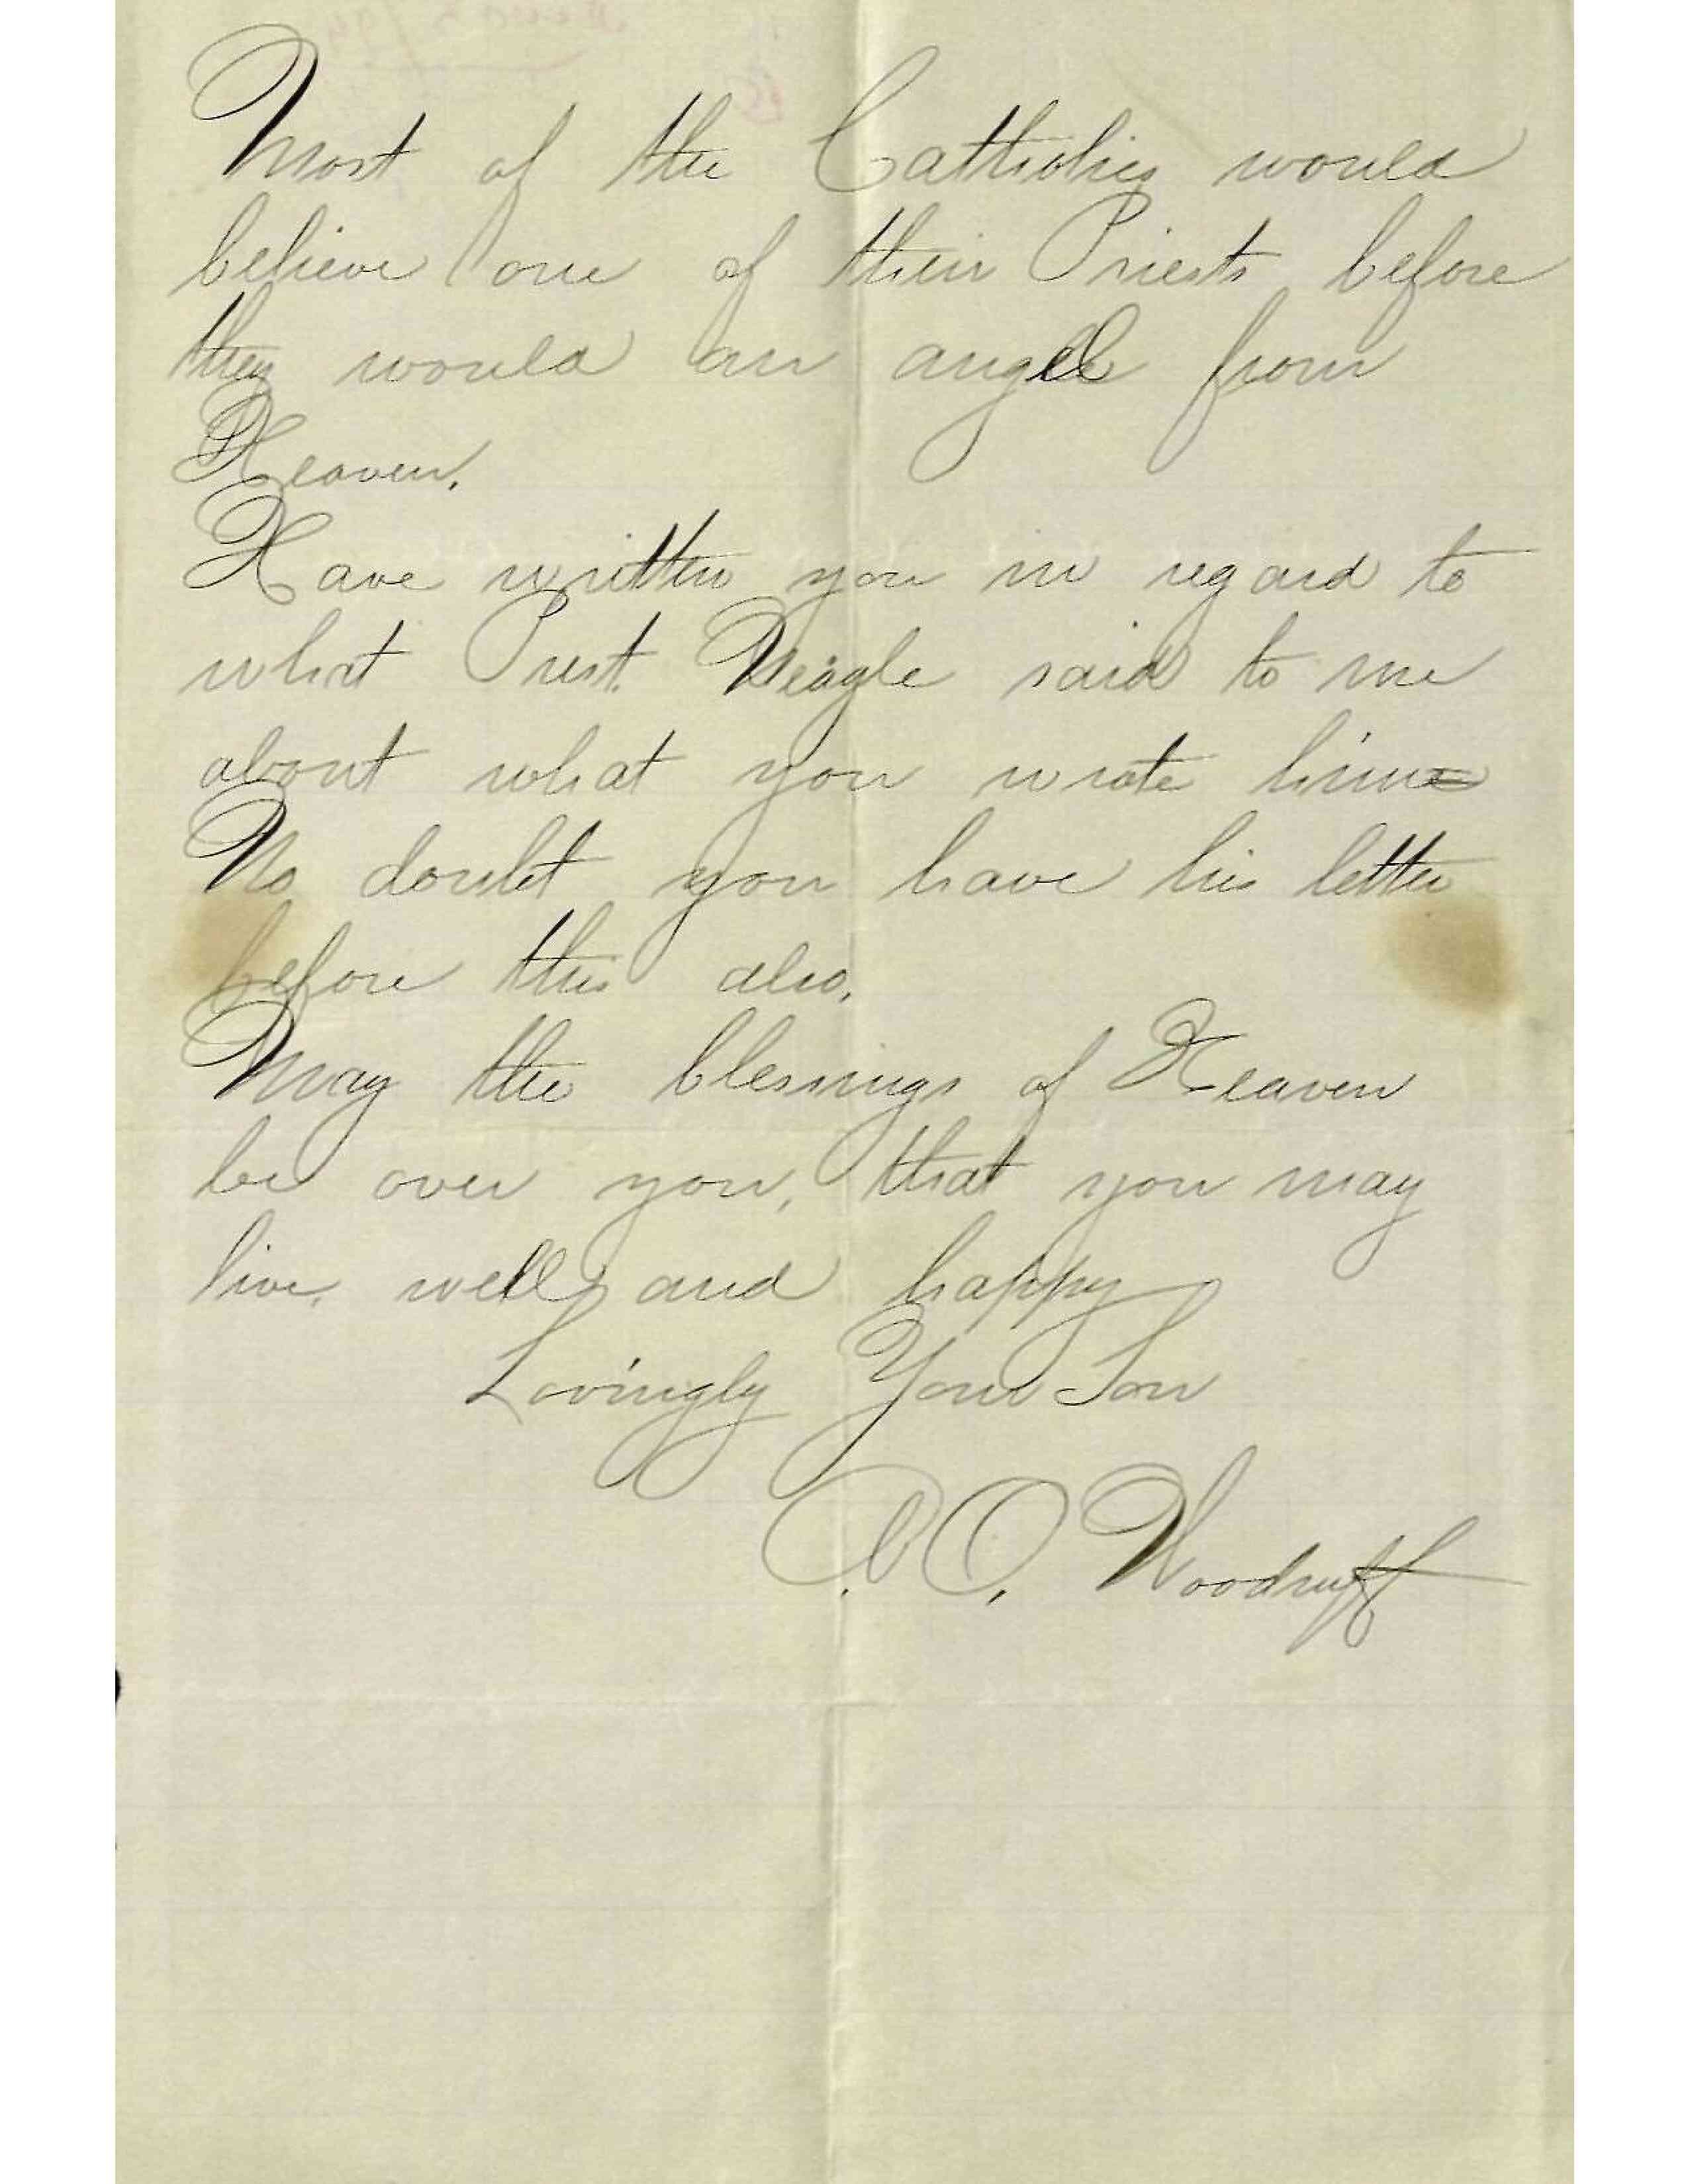 Most of the Catholics would
believe one of their Priests before
they would an angel from
Heaven.
Have written you in regard to
what Prest. Neagle said to me
about what you wrote him
No doubt you have his letter
before this also.
May the blessings of Heaven
be over you, that you may
live, well and happy
Lovingly Your Son
A. O. Woodruff